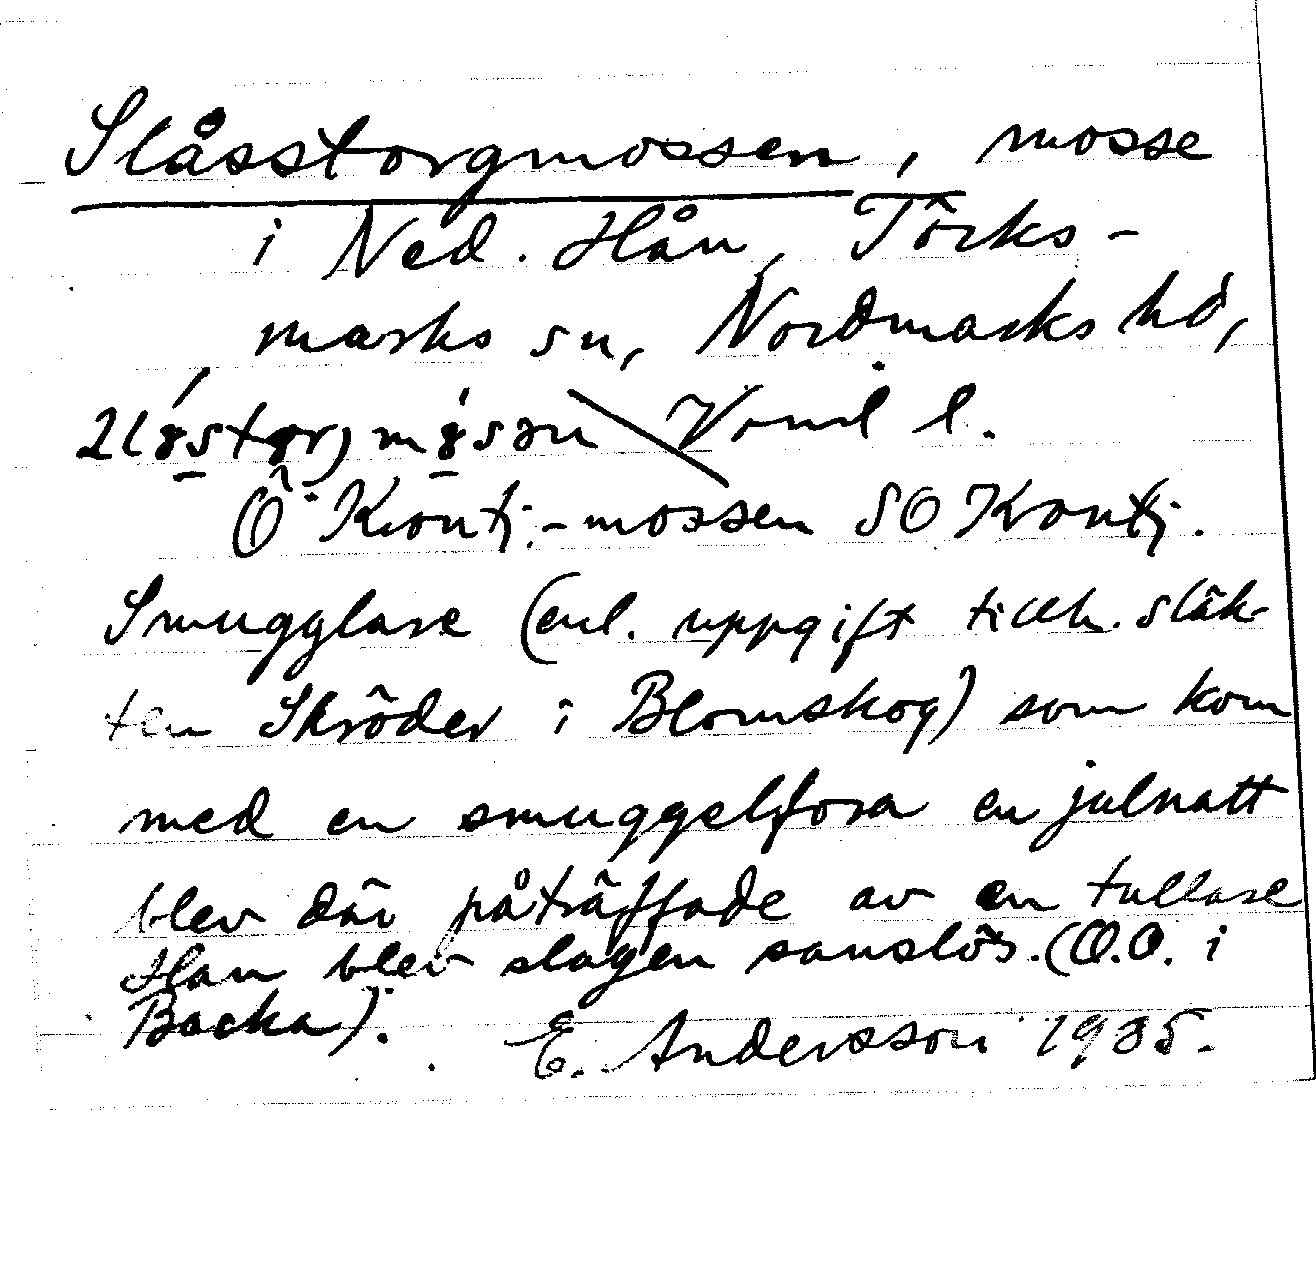 Slåsstorgmossen, mosse
i Ned. Hån, Töcks-
marks sn, Nordmarks hd,
Värml l.
Ö Kiontj.-mossen SO Kiontj.
Smugglare (enl. uppgift tillh. släk-
ten Skröder i Blomskog) som kom
med en smuggelfora en julnatt
blev där påträffade av en tullare
Han blev slagen sanslös. (O.O. i
Backa).
E. Andersson 1935.